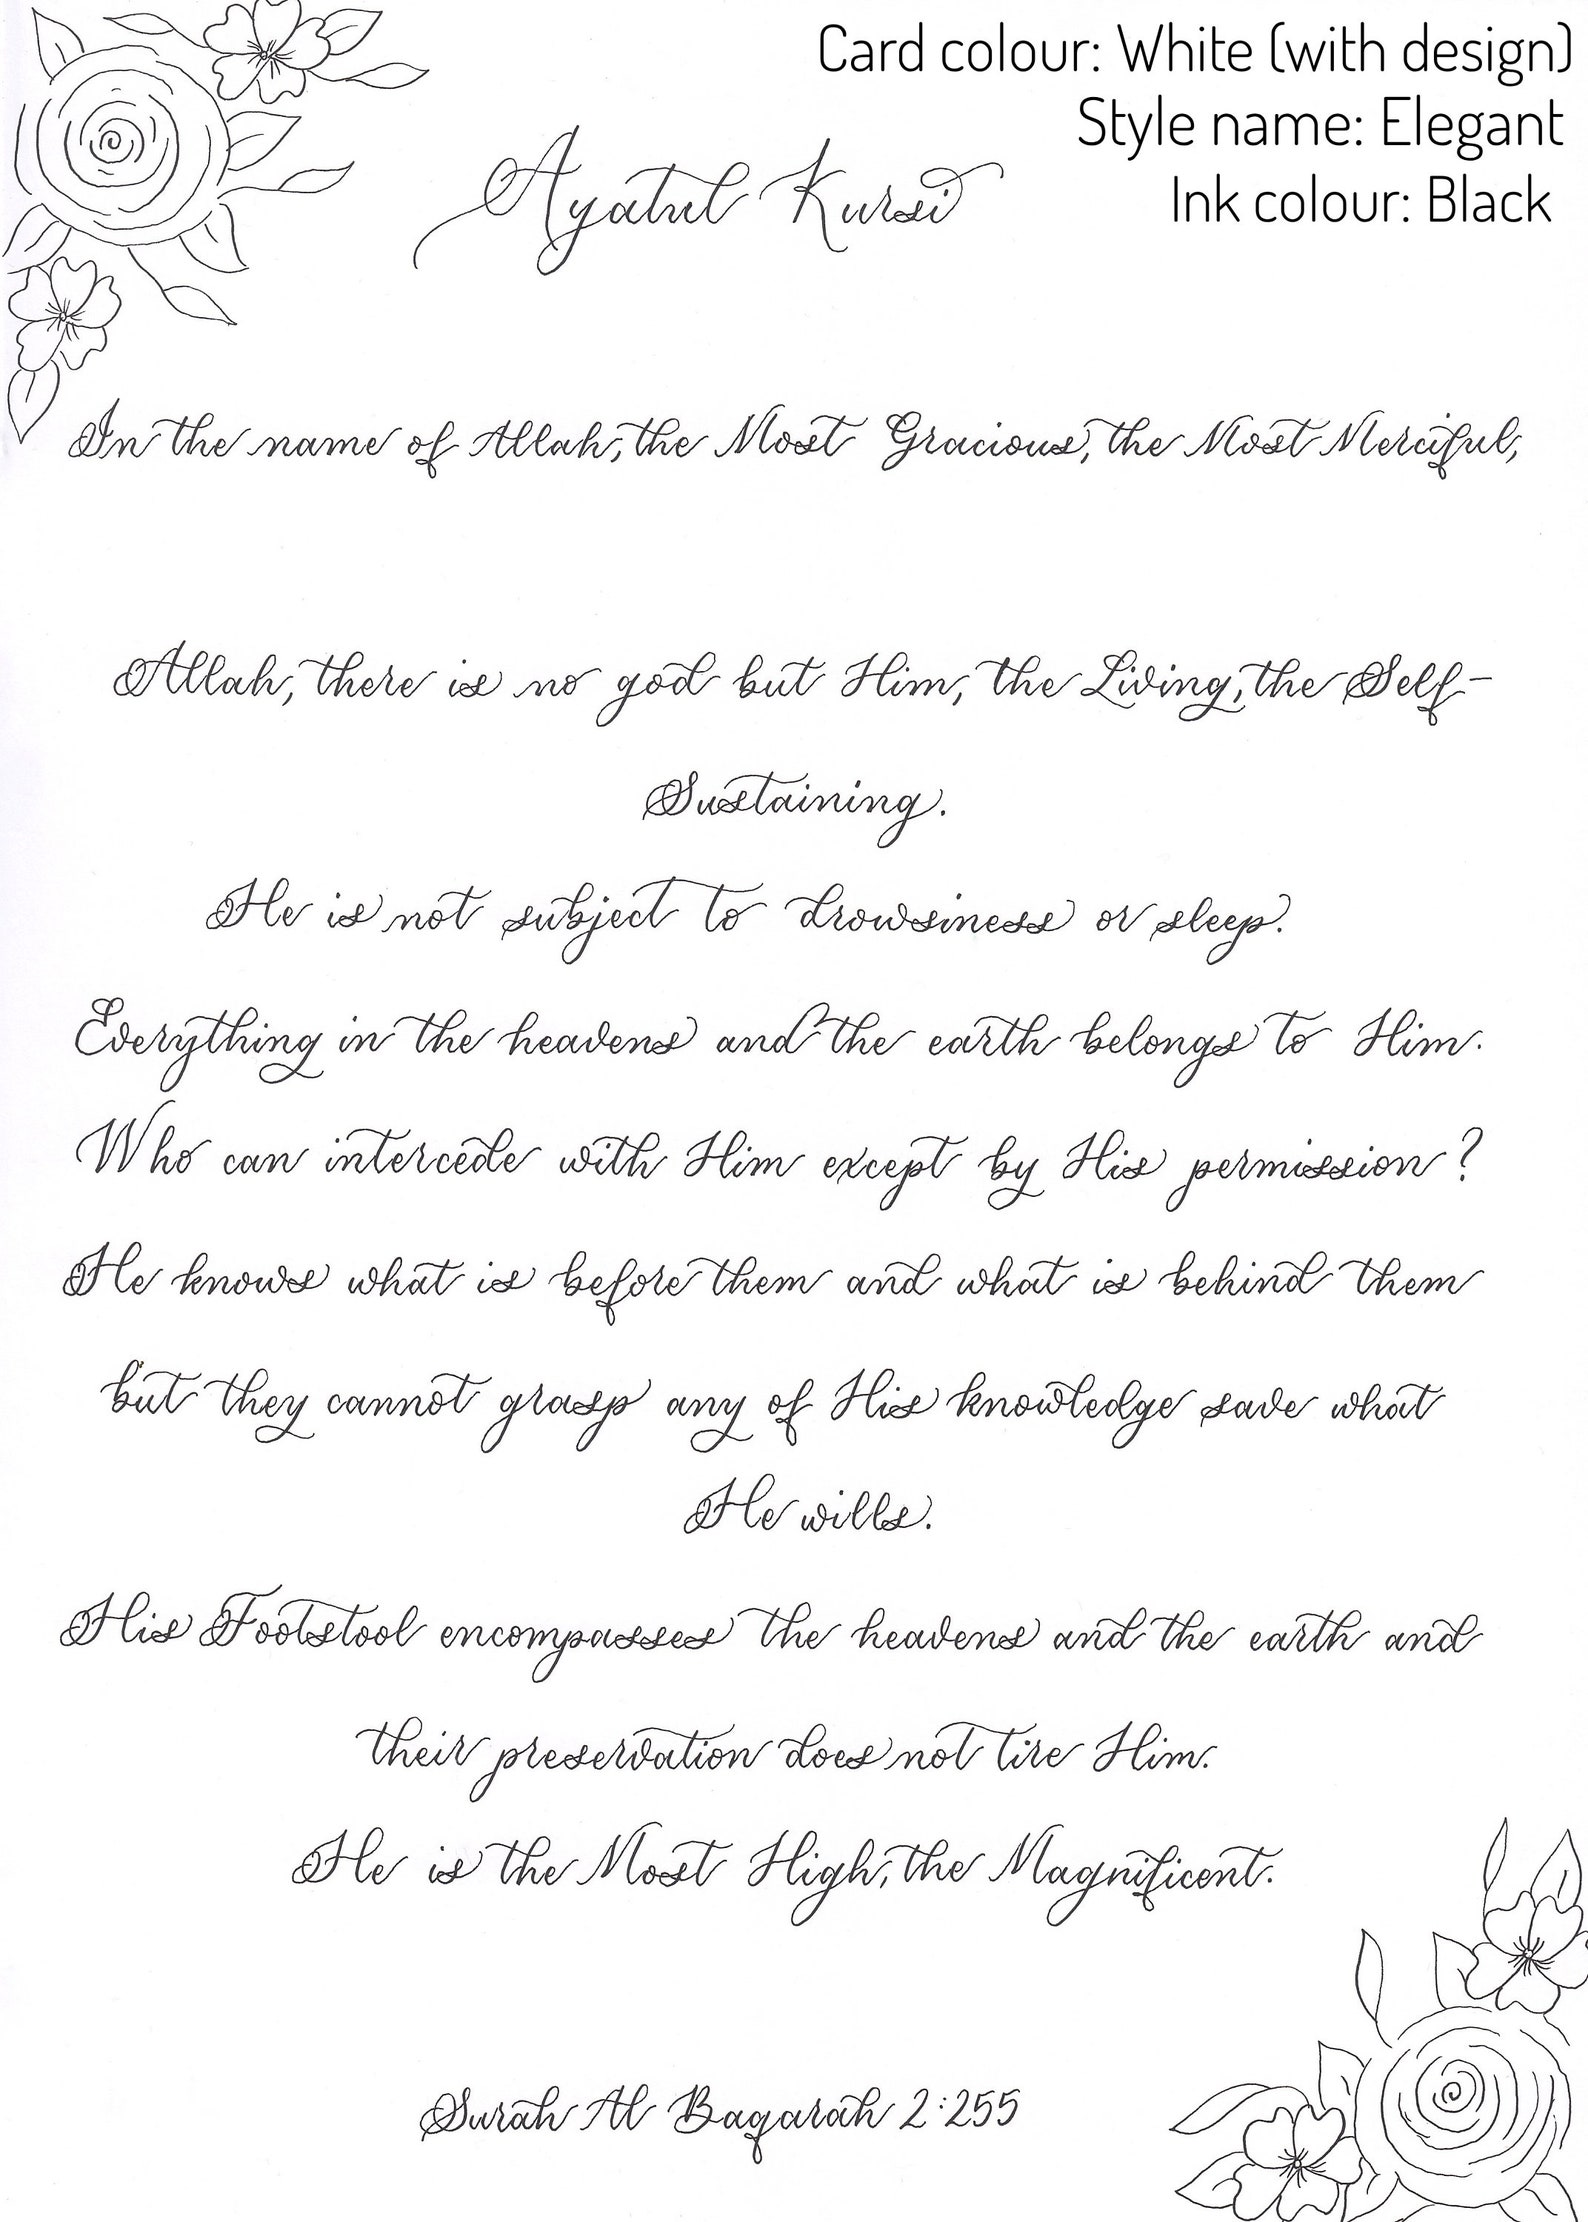 Card colour: White (with design)
Style name: Elegant
Ink colour: Black
Ayatul Kursi
In the name of Allah, the Most Gracious, the Most Merciful,
Allah, there is no god but Him, the Living, the Self-
Sustaining.
He is not subject to drowsiness or sleep.
Everything in the heavens and the earth belongs to Him.
Who can intercede with Him except by His permission?
He knows what is before them and what is behind them
but they cannot grasp any of His knowledge save what
He wills.
His Footstool encompasses the heavens and the earth and
their preservation does not tire Him.
He is the Most High, the Magnificent.
Surah Al Baqarah 2:255